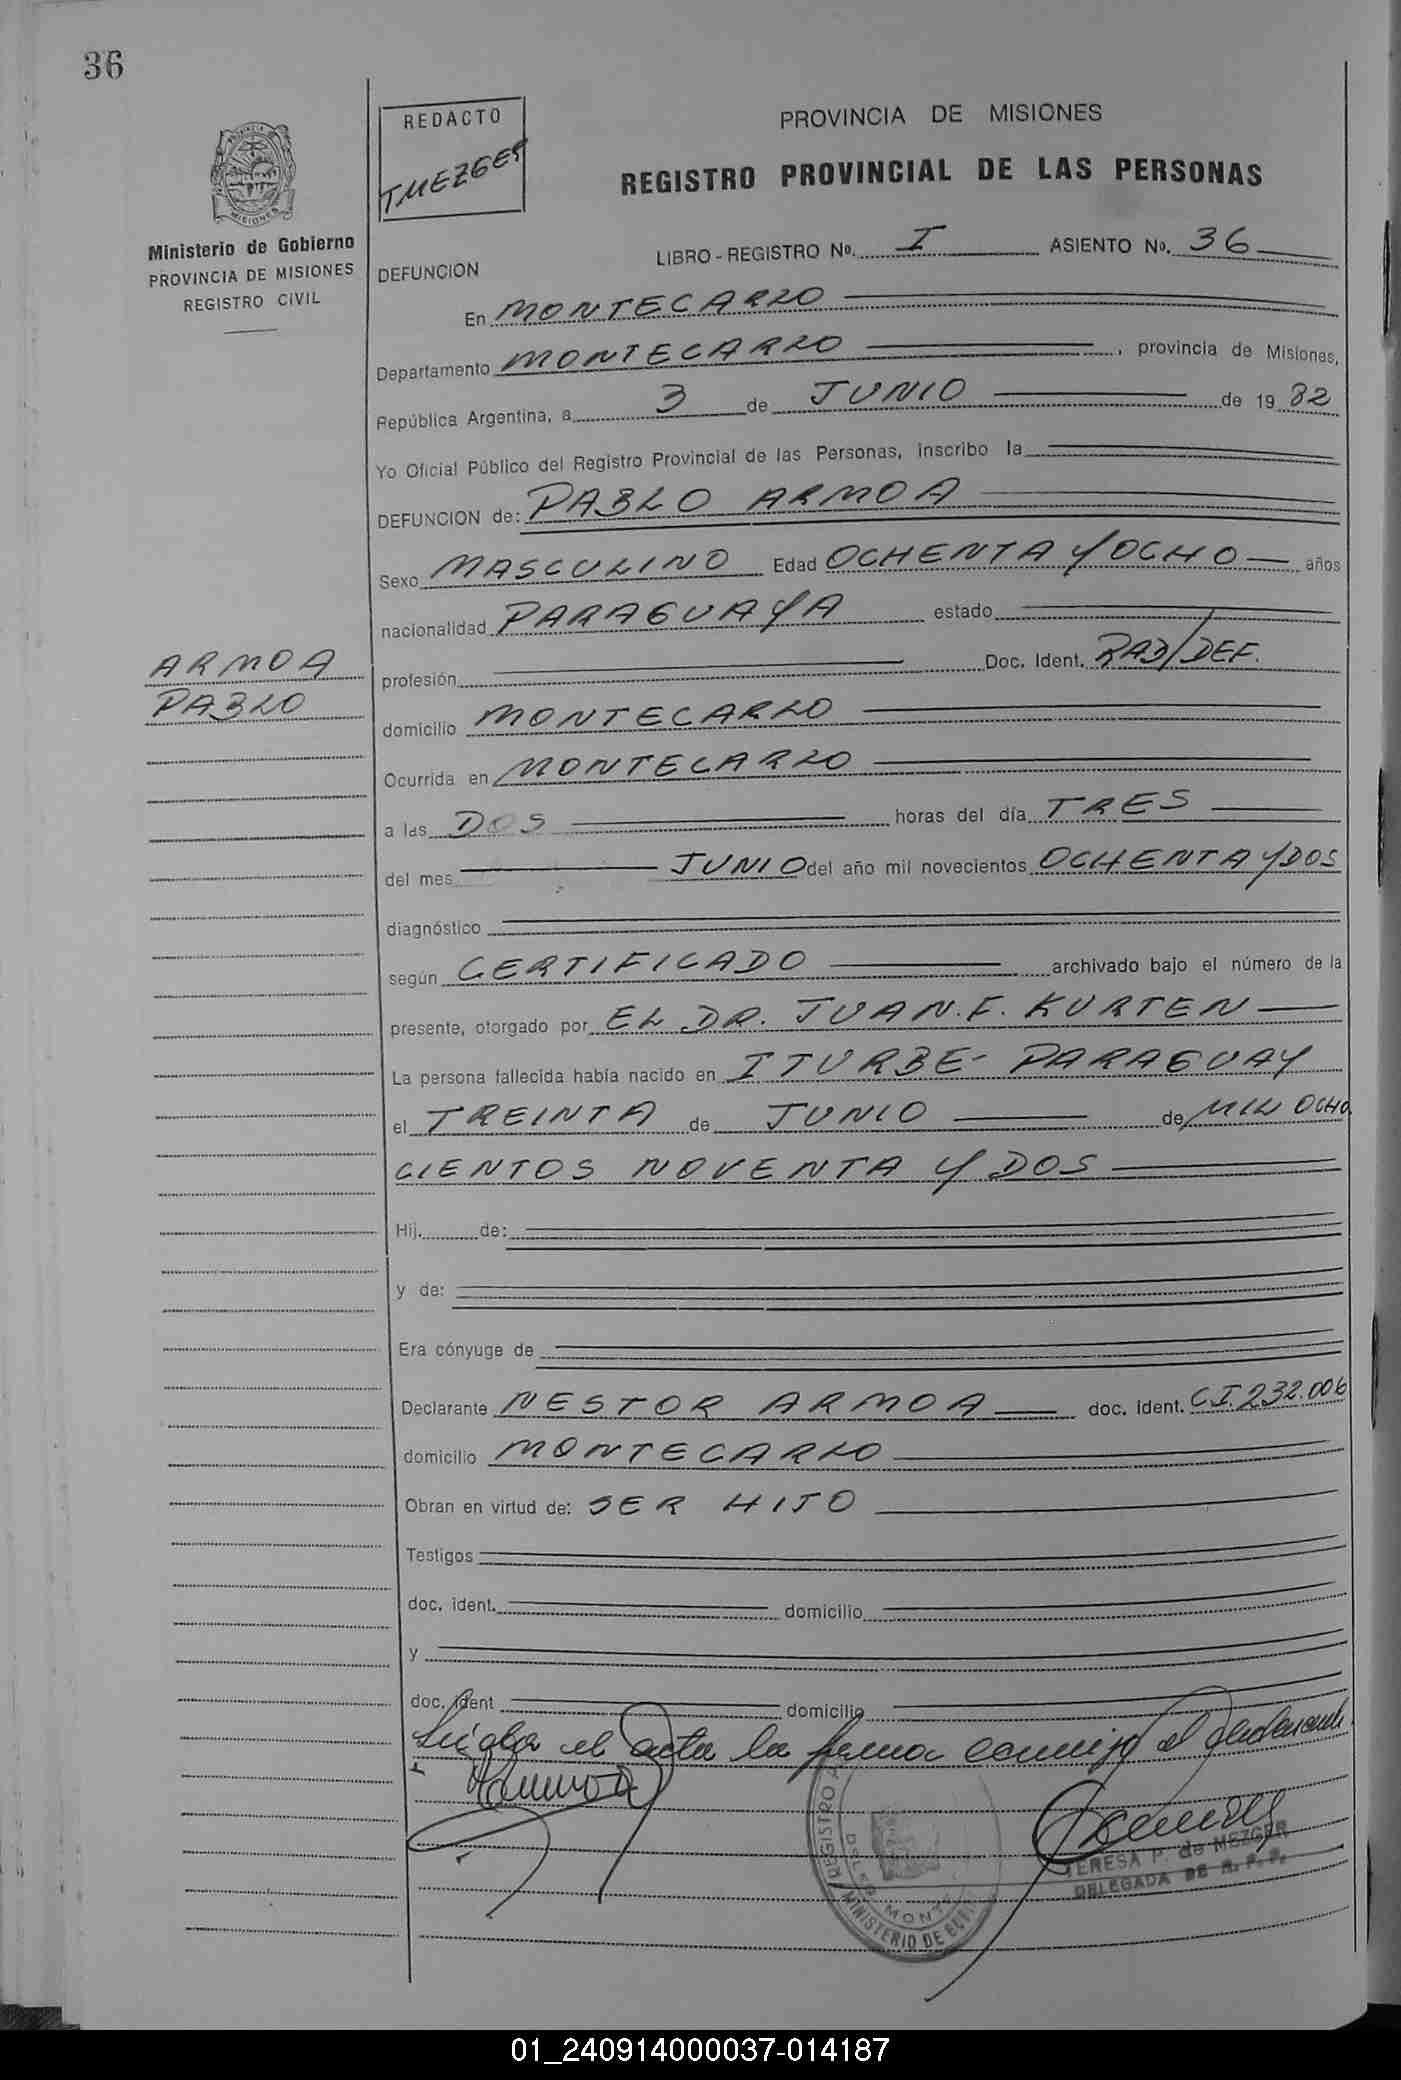 36
REDACTO
T MEZGER
PROVINCIA DE MISIONES
REGISTRO PROVINCIAL DE LAS PERSONAS
Ministerio de Gobierno
PROVINCIA DE MISIONES
REGISTRO CIVIL
LIBRO - REGISTRO Nº. I ASIENTO Nº. 36
DEFUNCION
En MONTECARLO
Departamento MONTECARLO, provincia de Misiones,
República Argentina, a 3 de JUNIO de 19 82
Yo Oficial Público del Registro Provincial de las Personas, inscribo la
DEFUNCION de: PABLO ARMOA
Sexo MASCULINO Edad OCHENTA Y OCHO años
nacionalidad PARAGUAYA estado
ARMOA
PABLO
profesión Doc. Ident. RAD/DEF.
domicilio MONTECARLO
Ocurrida en MONTECARLO
a las DOS horas del día TRES
del mes JUNIO del año mil novecientos OCHENTA Y DOS
diagnóstico
según CERTIFICADO archivado bajo el número de la
presente, otorgado por EL DR. JUAN. F. KURTEN
La persona fallecida había nacido en ITURBE - PARAGUAY
el TREINTA de JUNIO de MIL OCHO
CIENTOS NOVENTA Y DOS
Hij. de:
y de:
Era cónyuge de
Declarante NESTOR ARMOA doc. ident. C.I. 232.006
domicilio MONTECARLO
Obran en virtud de: SER HIJO
Testigos
doc. ident. domicilio
y
doc. ident domicilio
el acta la firma conmigo el declarante
TERESA P. de MEZGER
DELEGADA DE R. P. P.
REGISTRO
MINISTERIO DE
01_240914000037-014187